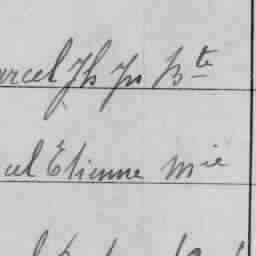 arcel Jh Jn Bte
cel Etienne Mie